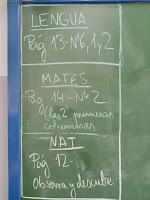 LENGUA
Pág 13-Nº6,1y2
MATES
Pág 14-Nº2
(las 2 primeras
columnas
NAT
Pág 12-
Observa y descubre